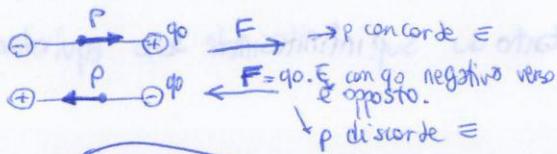 P
⊖ ⊕ q₀ F → p concorde E
P F = q₀·E, con q₀ negativo verso
⊕ ⊖ q₀ è opposto.
p discorde E